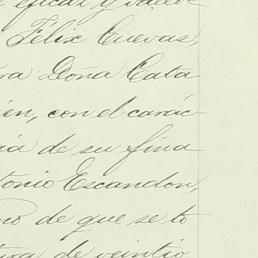 eficaz y
Félix Cuevas,
ra Doña Cata
én, con el carác
ia de su fina
tonio Escandon,
no de que se to
tura de veintio